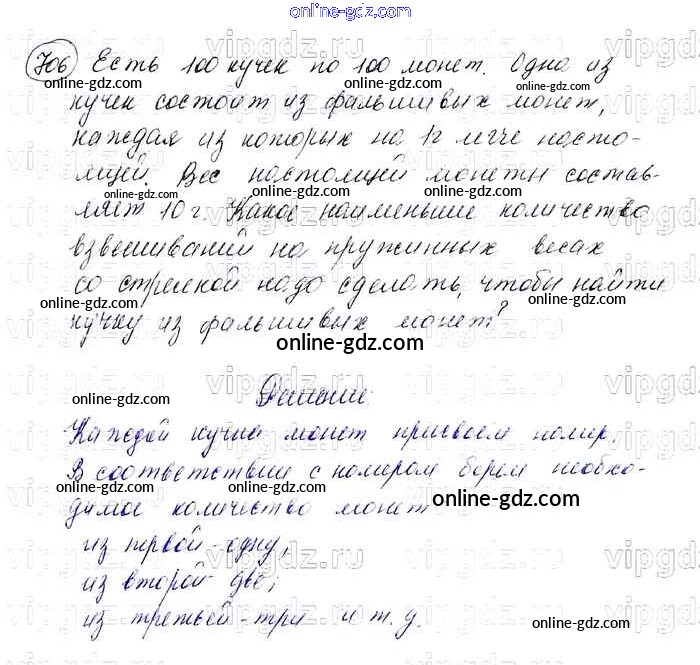 706 Есть 100 кучек по 100 монет. Одна из
кучек состоит из фальшивых монет,
каждая из которых на 1г легче насто-
ящей. Вес настоящей монеты состав-
ляет 10 г. Какое наименьшее количество
взвешиваний на пружинных весах
со стрелкой надо сделать, чтобы найти
кучку из фальшивых монет?
Решение:
Каждой кучке монет присвоем номер.
В соответствии с номером берем необхо-
димое количество монет
из первой - одну,
из второй - две;
из третьей - три и т. д.
online-gdz.com
vipgdz.ru